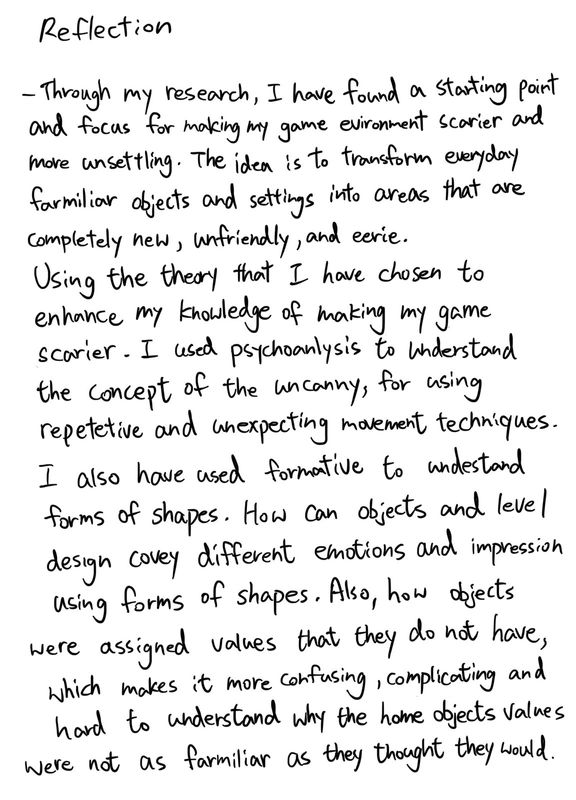 Reflection
- Through my research, I have found a starting point
and focus for making my game evironment scarier and
more unsettling. The idea is to transform everyday
farmiliar objects and settings into areas that are
completely new, unfriendly, and eerie.
Using the theory that I have chosen to
enhance my knowledge of making my game
scarier. I used psychoanlysis to understand
the concept of the uncanny, for using
repetetive and unexpecting movement techniques.
I also have used formative to undestand
forms of shapes. How can objects and level
design covey different emotions and impression
using forms of shapes. Also, how objects
were assigned values that they do not have,
which makes it more confusing, complicating and
hard to understand why the home objects values
were not as farmiliar as they thought they would.